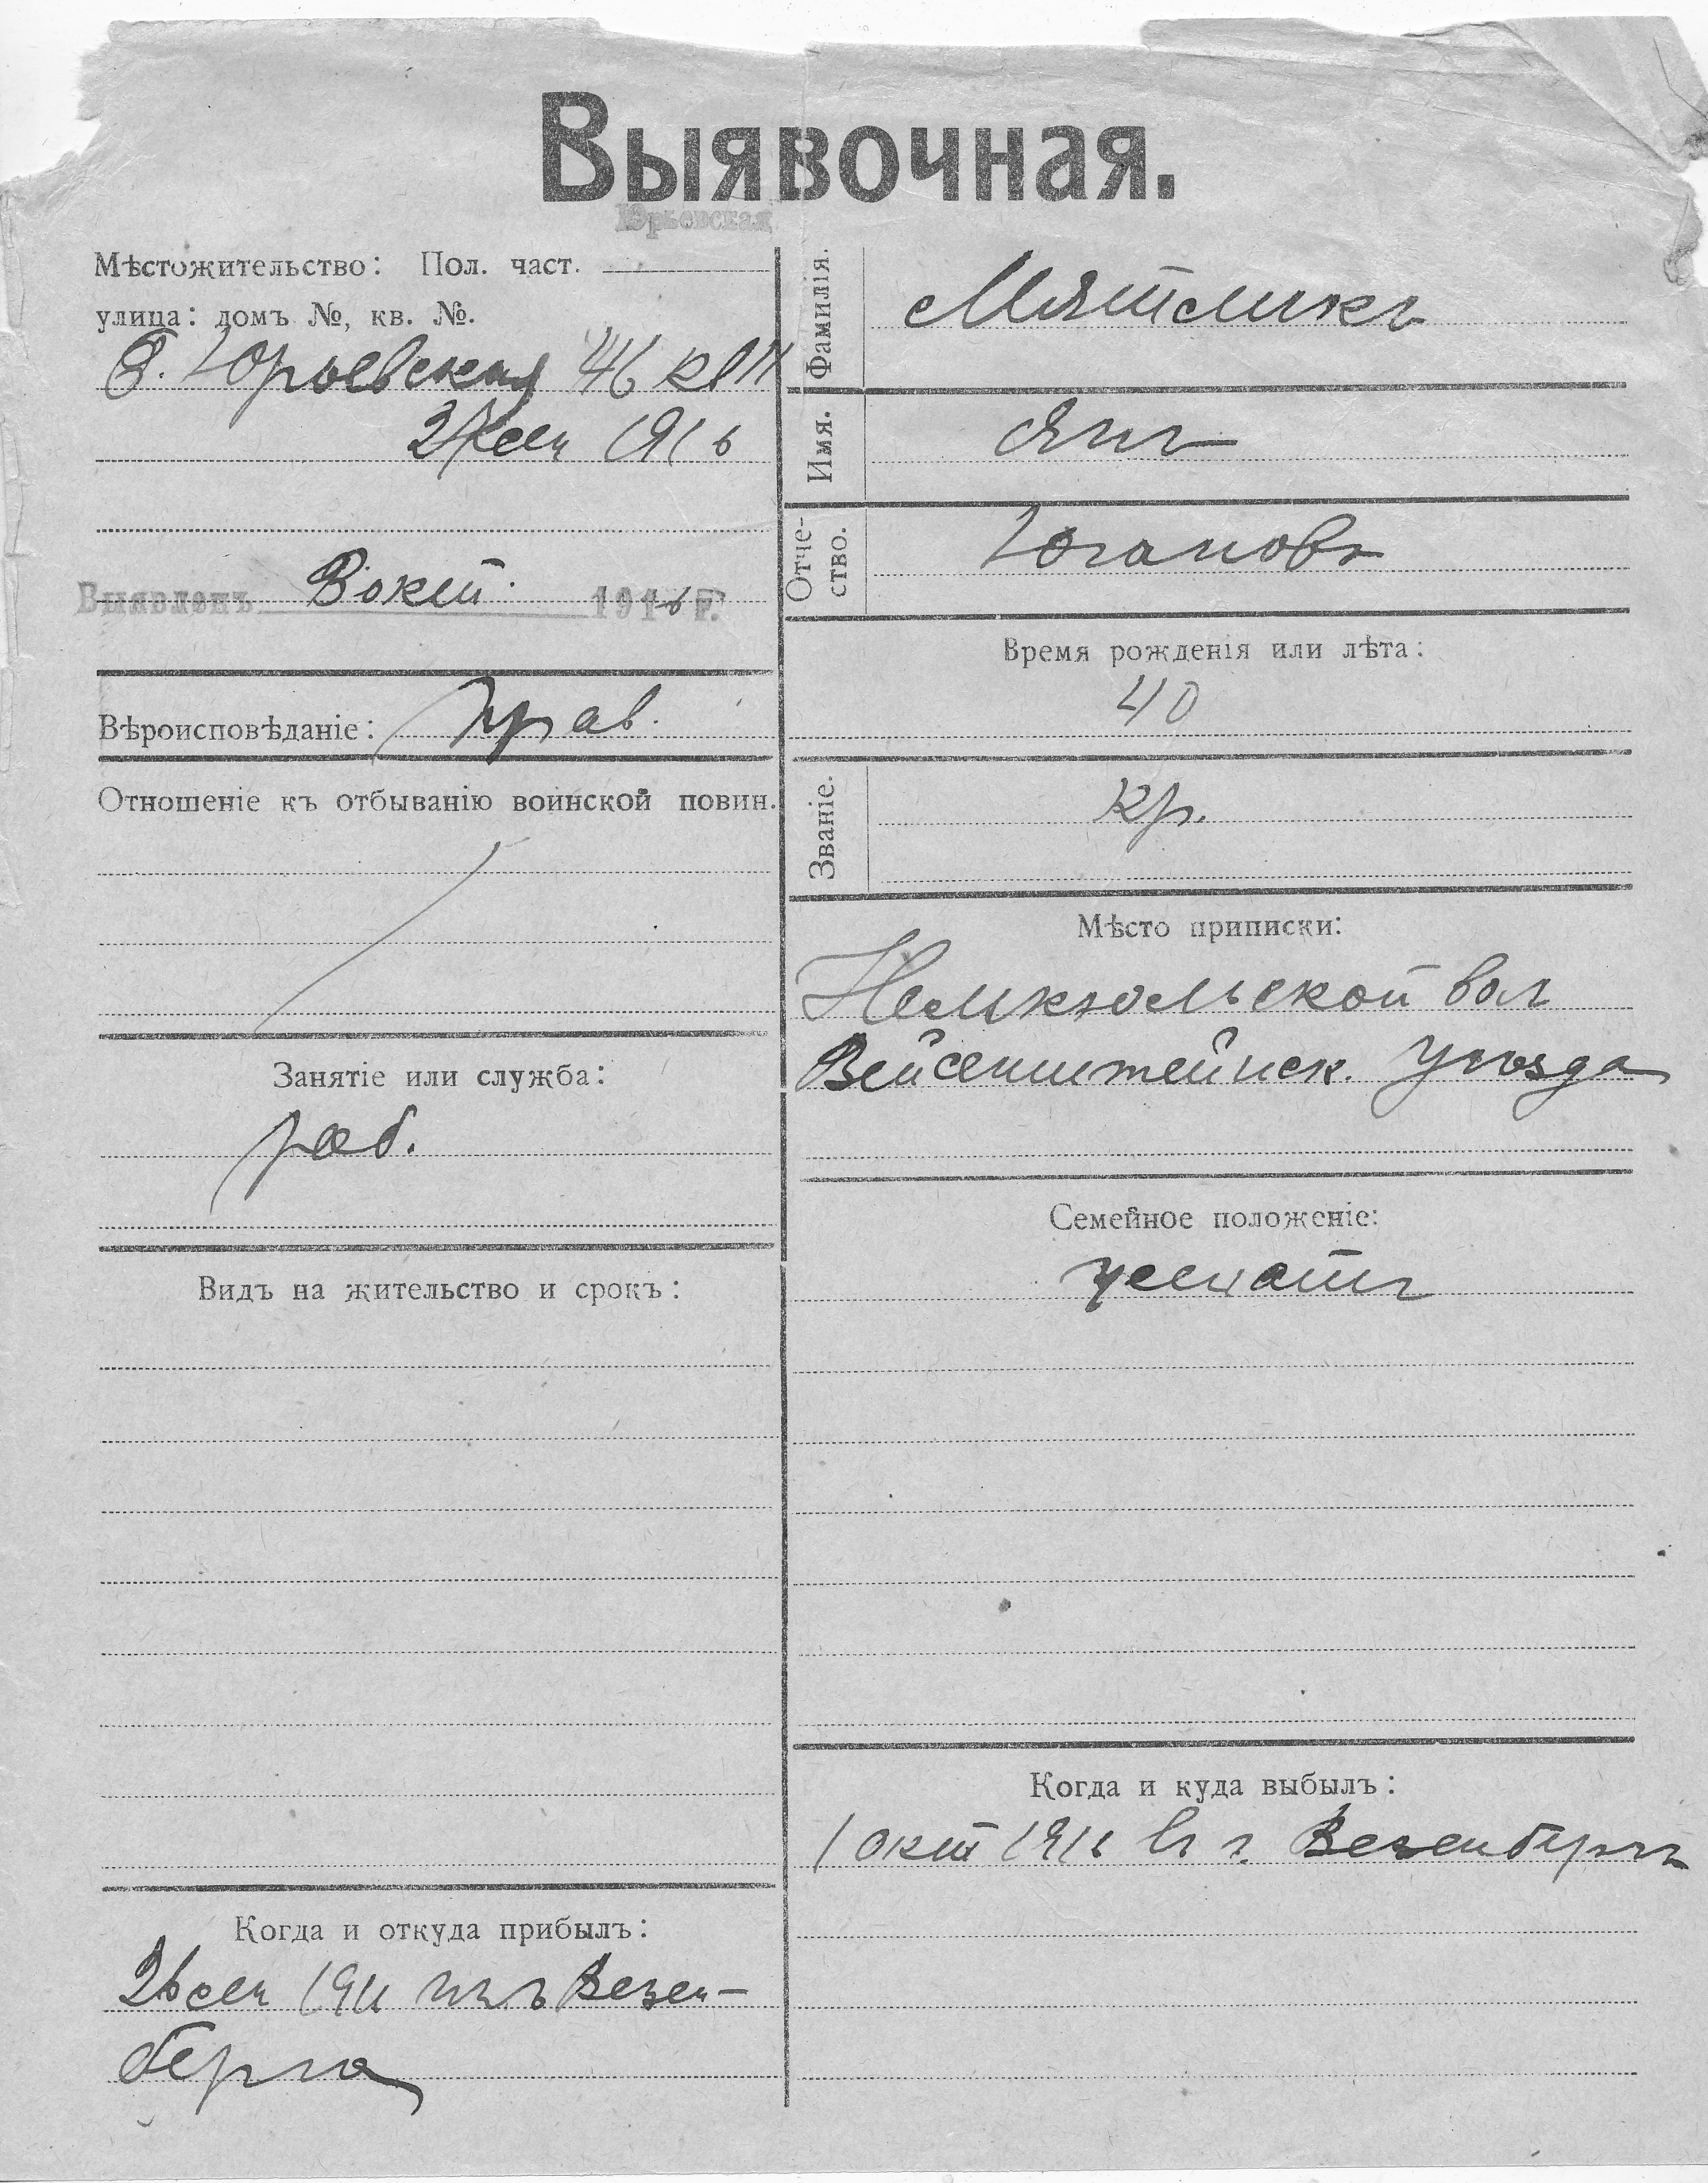 Выявочная.
Юрьевская
Мѣстожительство: Пол. част.
улица: домъ №, кв. №.
Б. Юрьевская 46 кв 11
27 сен 1916
Выявленъ 3 окт. 1916 г.
Вѣроисповѣданіе: Прав.
Отношеніе къ отбыванію воинской повин.
Занятіе или служба:
раб.
Видъ на жительство и срокъ:
Когда и откуда прибылъ:
26 сен 1916 изъ Везен-
берга
Фамилія. Мятликъ
Имя. Янъ
Отче-
ство. Югановъ
Время рожденія или лѣта:
40
Званіе. кр.
Мѣсто приписки:
вол
Вейсенштейнск. уѣзда
Семейное положеніе:
женатъ
Когда и куда выбылъ:
1 окт 1916 въ г. Везенбергъ